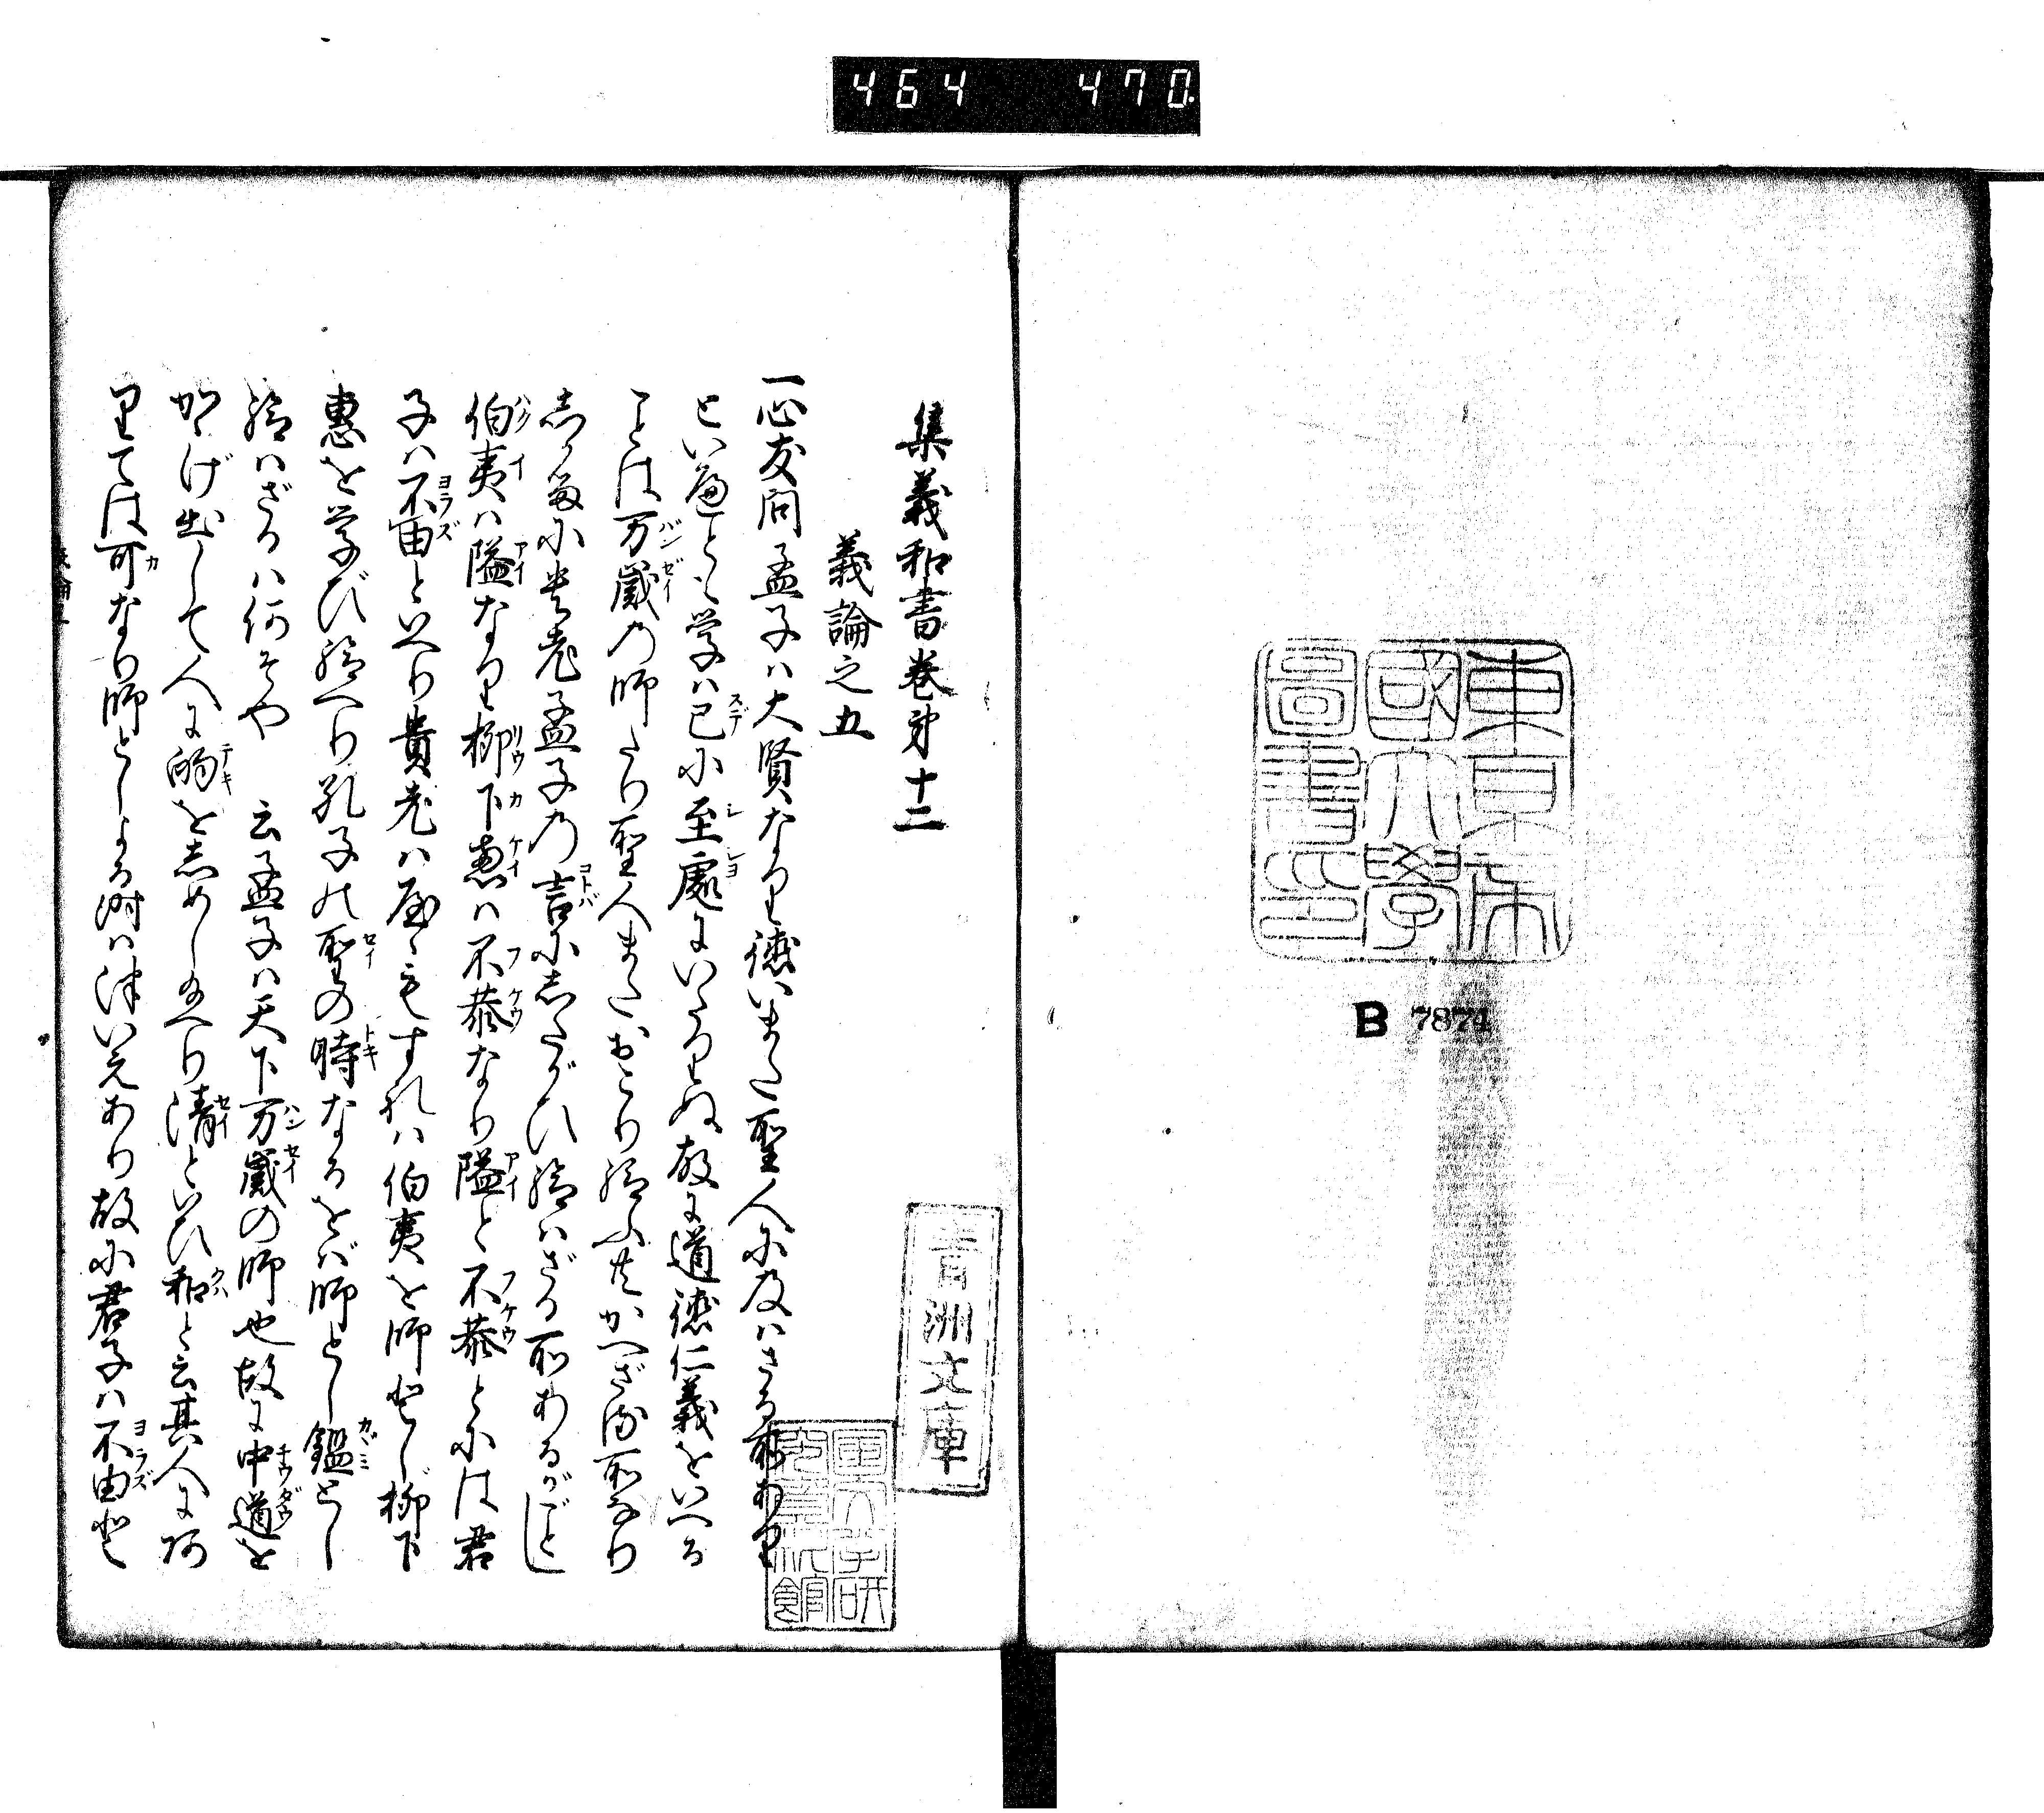 464 470.
東京帝
國大學
圖書印
B 7874
集義和書巻第十二
義論之五
青洲文庫
一心友問孟子ハ大賢なり徳いまた聖人に及ハさる所あり
といへとも学ハ已に至處にいたりぬ故に道徳仁義をいへる
ことは万歳の師たり聖人またおこり給ふ共かへざる所なり
しかるに貴老孟子の言にしたがひ給ハざる所あるがごとし
伯夷ハ隘なり柳下恵ハ不恭なり隘と不恭とには君
子ハ不由といへり貴老ハ屡〻もすれハ伯夷を師とし柳下
恵を学び給へり孔子の聖の時なるをば師とし鑑とし
給ハざるハ何そや 云孟子ハ天下万歳の師也故に中道を
かゝげ出して人に的をしめし給へり清といひ和と云其人に阿
りては可なり師としよる時ハ津いえあり故に君子ハ不由と